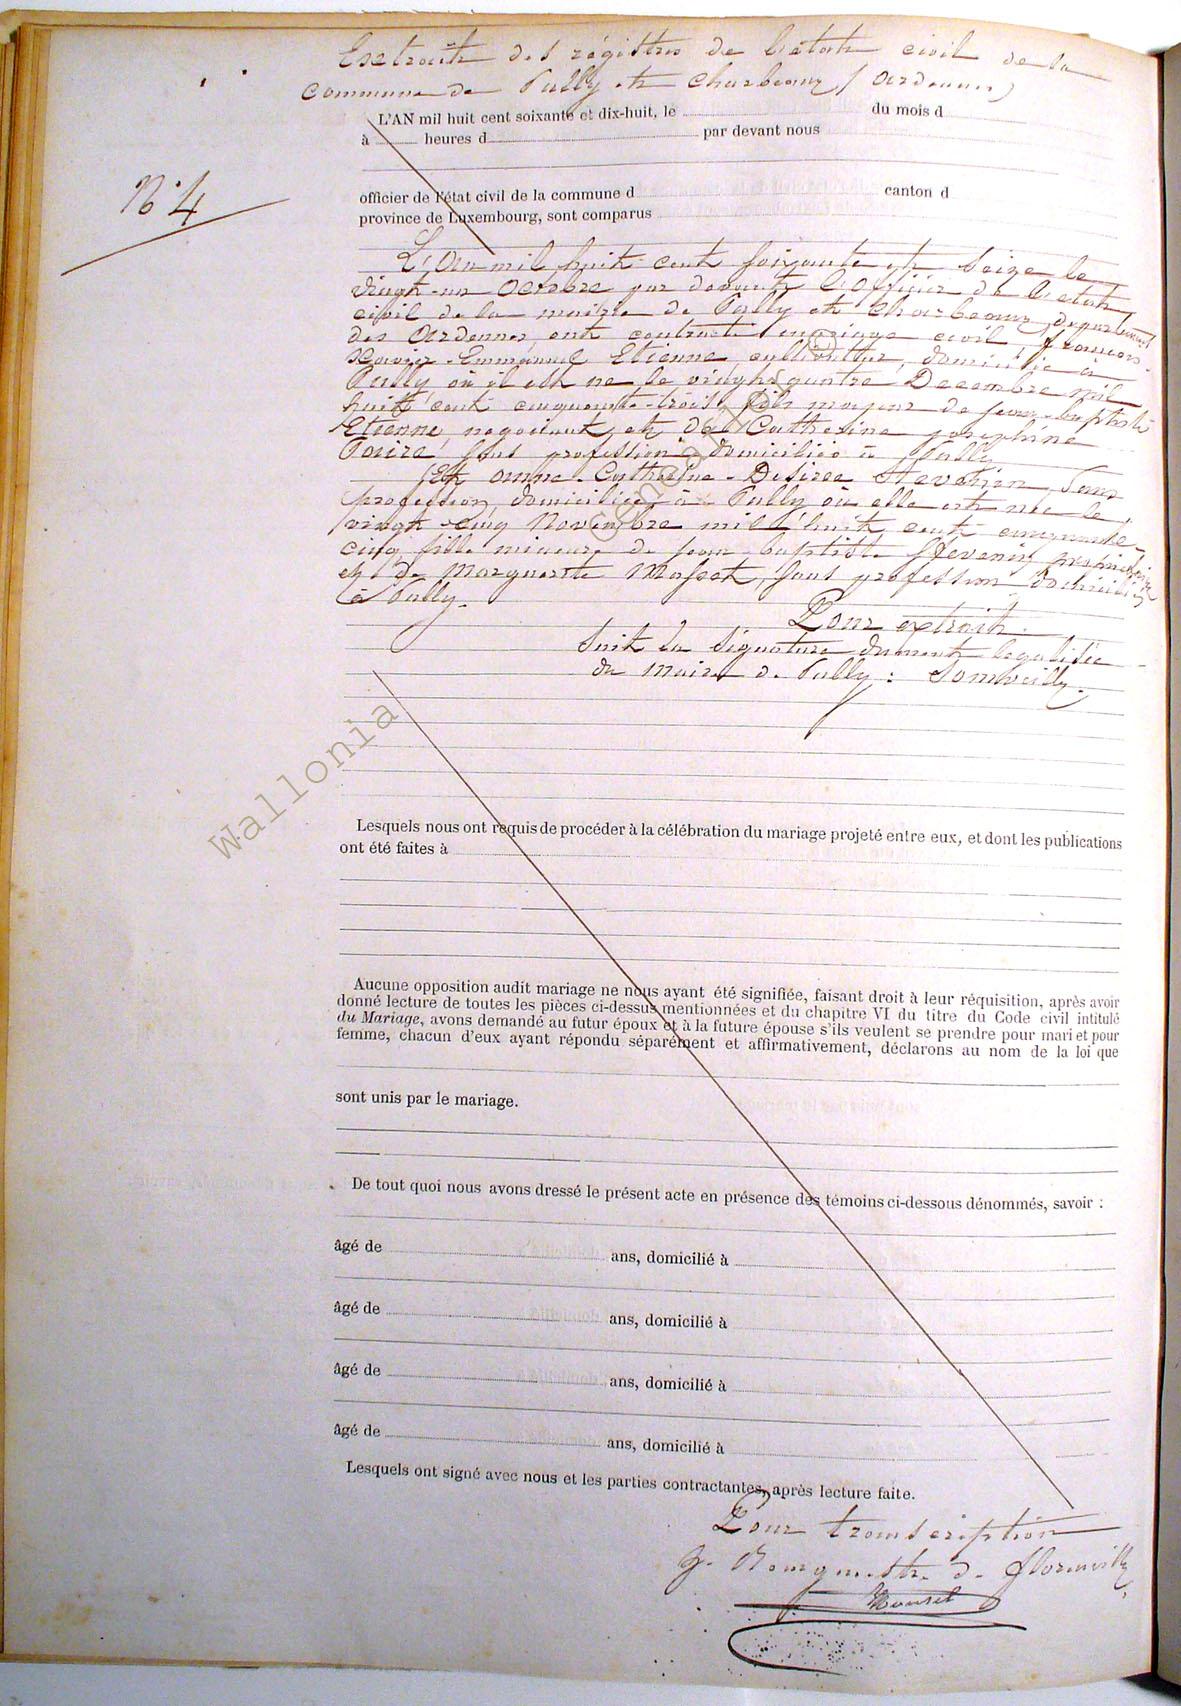 Extrait des régistres de l'état civil de la
commune de Pully et Charbeaux (Ardennes)
L'AN mil huit cent soixante et dix-huit, le du mois d
à heures d par devant nous
N° 4
officier de l'état civil de la commune d canton d
province de Luxembourg, sont comparus
L'An mil huit cent soixante et seize le
vingt-un Octobre par devant l'officier de l'état
civil de la mairie de Pully et Charbeaux département
des Ardennes, ont contracté mariage civil, françois
Xavier-Emmanuel Etienne cultivateur, domicilié à
Pully où il est né le vingt quatre Décembre mil
huit cent cinquante-trois fils majeur de jean-baptiste
Etienne, négociant, et de Catherine josephine
sans profession domiciliés à Pully
Et anne-Catherine-Désirée Stevenin, sans
profession, domiciliée à Pully où elle est née le
vingt-cinq Novembre mil huit cent cinquante-
cinq, fille mineure de jean-baptiste Stevenin,
et de Marguerite Masset, sans profession domiciliés
à Pully.
Pour extrait.
Suit la signature dument légalisée
du Maire de Pully :
Wallonia
Genealogie
Lesquels nous ont requis de procéder à la célébration du mariage projeté entre eux, et dont les publications
ont été faites à
Aucune opposition audit mariage ne nous ayant été signifiée, faisant droit à leur réquisition, après avoir
donné lecture de toutes les pièces ci-dessus mentionnées et du chapitre VI du titre du Code civil intitulé
du Mariage, avons demandé au futur époux et à la future épouse s'ils veulent se prendre pour mari et pour
femme, chacun d'eux ayant répondu séparément et affirmativement, déclarons au nom de la loi que
sont unis par le mariage.
De tout quoi nous avons dressé le présent acte en présence des témoins ci-dessous dénommés, savoir :
âgé de ans, domicilié à
âgé de ans, domicilié à
âgé de ans, domicilié à
âgé de ans, domicilié à
Lesquels ont signé avec nous et les parties contractantes, après lecture faite.
Pour transcription
Bourgmestre de florenville,